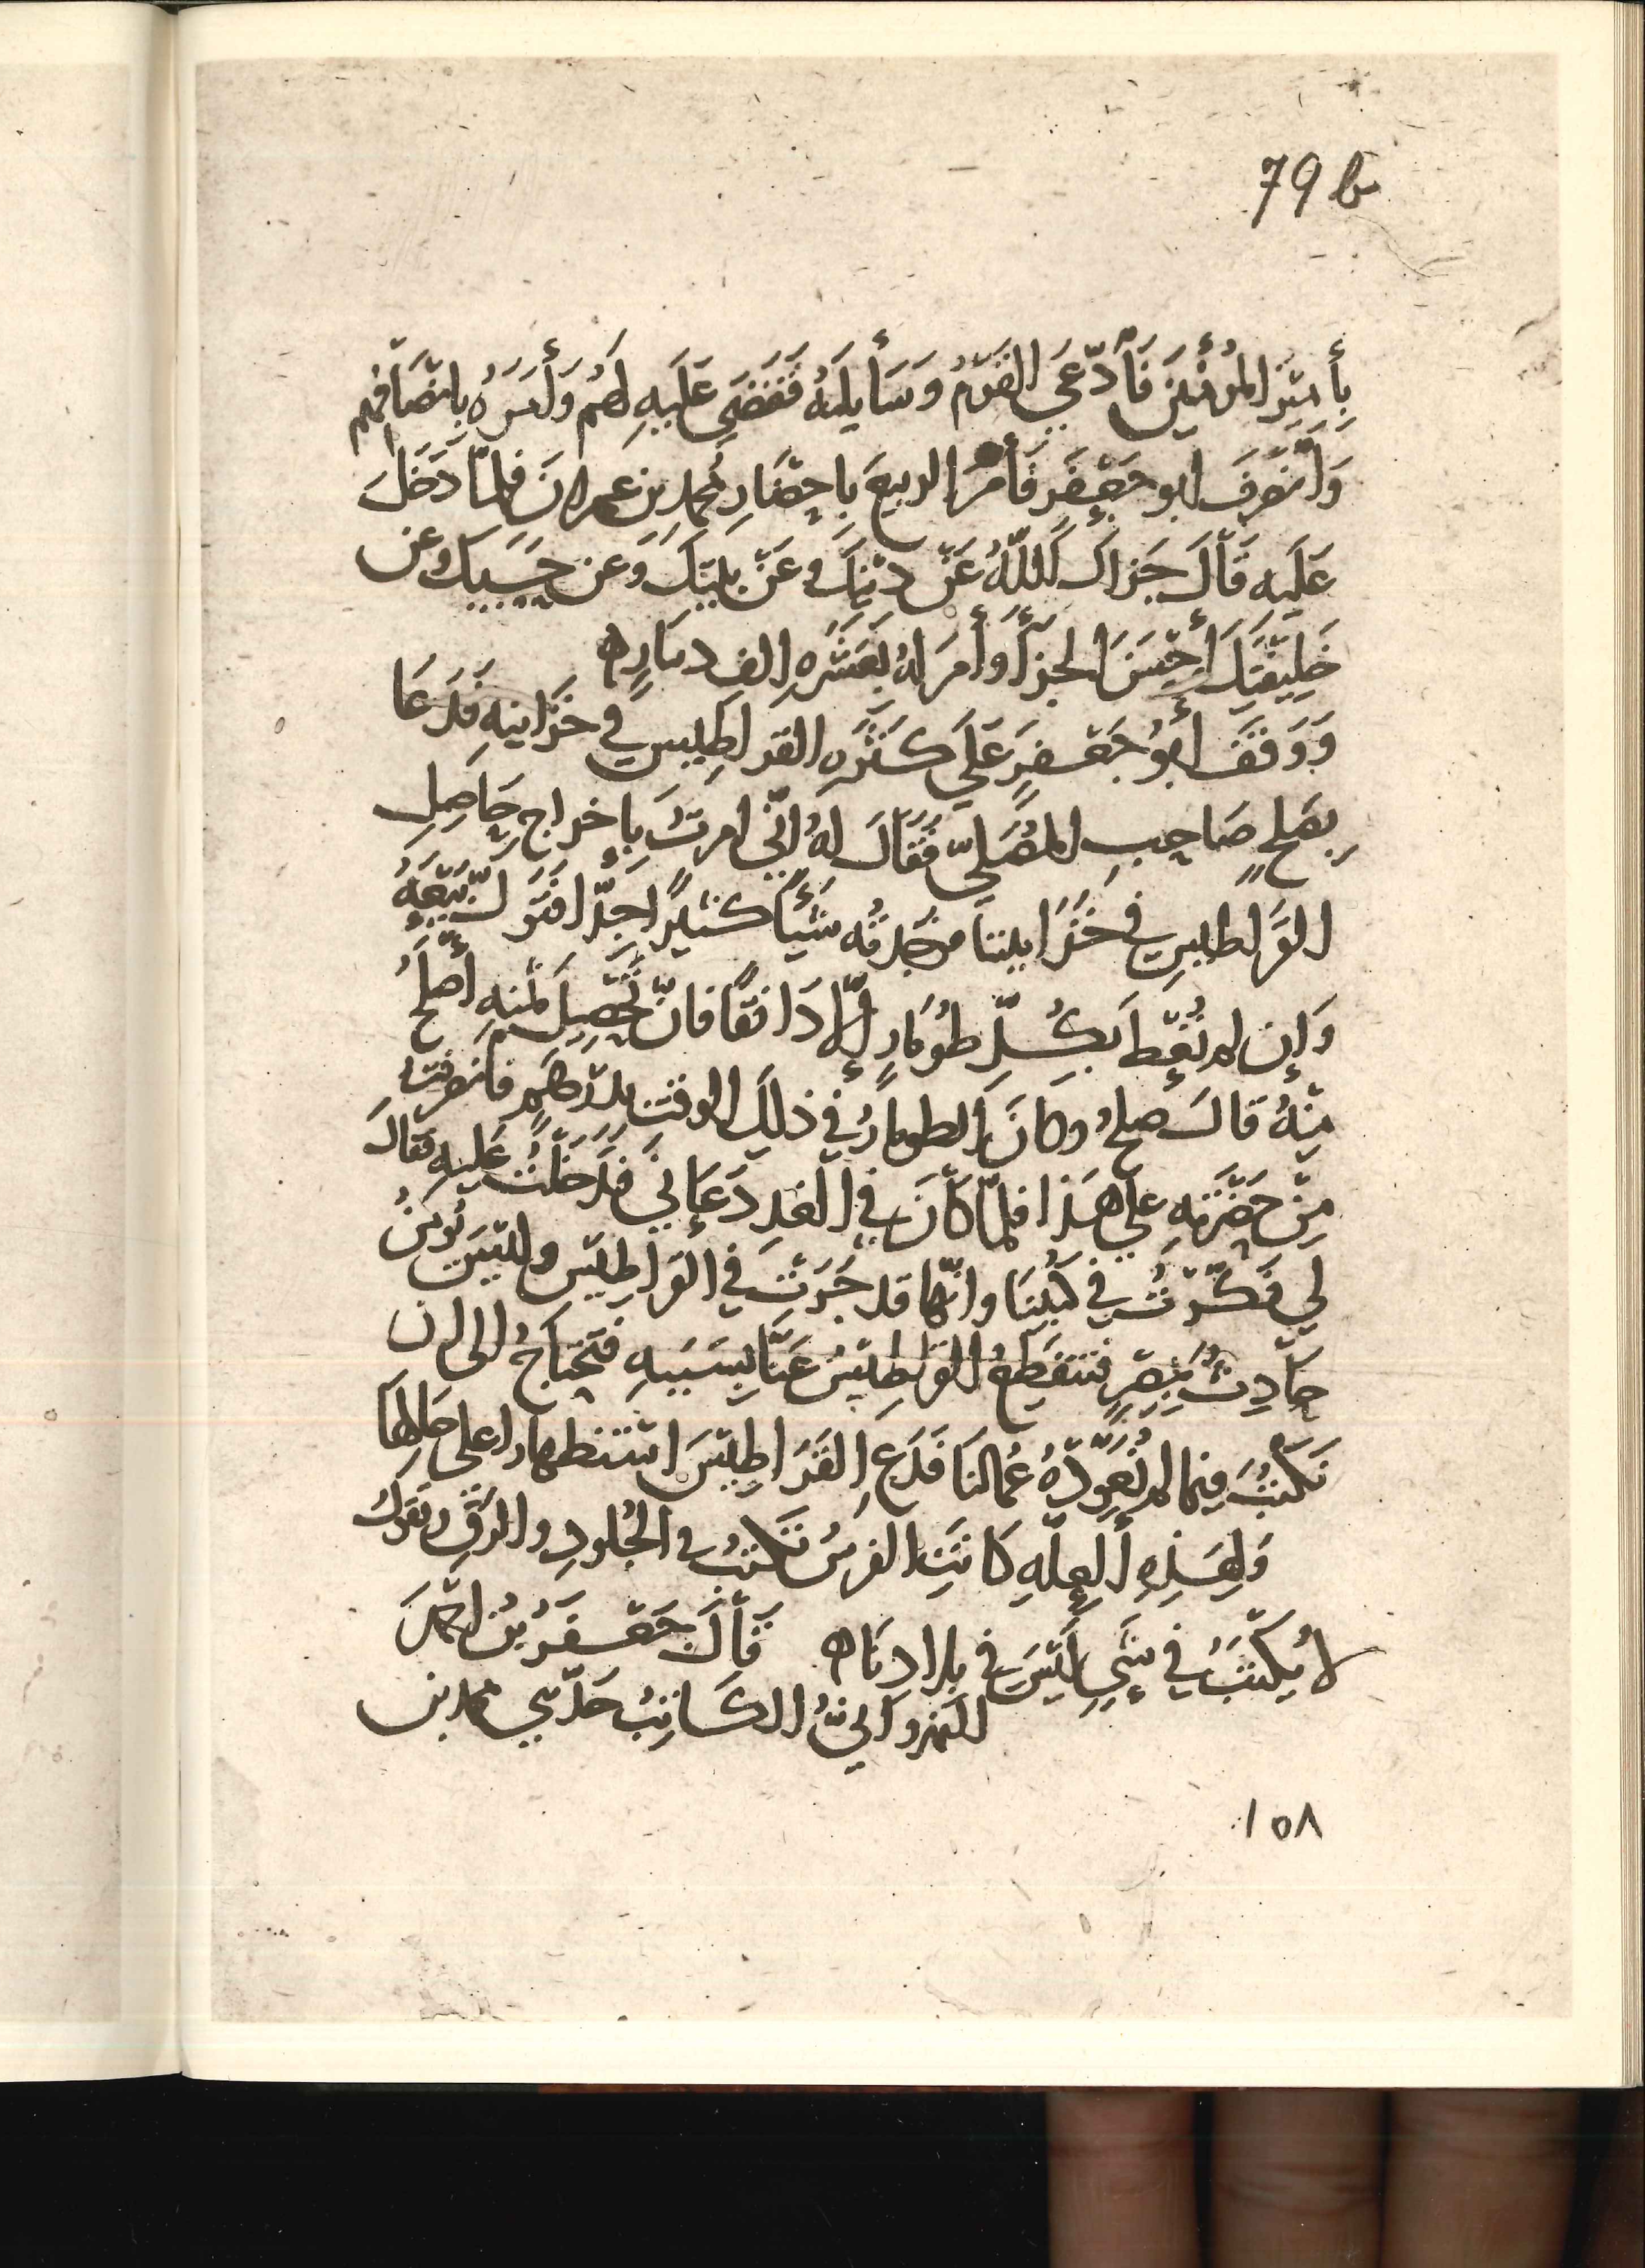 79 b
بأمير المؤمنين فأدّعي القوم وسأيله فقضي عليه لهم وأمره بانصافهم
وانصرف ابو جعفر فأمر الربيع باحضار محمد بن عمران فلما دخل
عليه قال جزاك الله عن دينك وعن بيتك وعن حسبك وعن
خليفتك أحسن الجزأ وأمر له بعشره الف دينار ه
ووقف أبو جعفر علي كثره القراطيس في خزاينه فدعا
بصلح صاحب المصلي فقال له انّي امرت باخراج حاصل
القراطيس في خزايننا فوجدته شيأ كثيرا جدّا فتولّ بيعه
وإن لم تعط بكل طومار إلّا دانقًا فانّ تحصيل ثمنه أصلح
منه قال صلح وكان الطومار في ذلك الوقت بدرهم فانصرفت
من حضرته علي هذا فلما كان في الغد دعاني فدخلت عليه فقال
لي فكّرت في كتبنا وانّها قد جرت في القراطيس وليس نومن
حادث بمصر فتنقطع القراطيس عنّا بسببه فنحتاج الى ان
نكتب فيما لم نعوّده عمالنا فدع القراطيس استظهارا على حالها
ولهذه العلّه كانت الفرس تكتب في الجلود والرق وتقول
لا نكتب في شي ليس في بلادنا ه قال جعفر بن احمد
النهرواني الكاتب حدّثني محمد بن
١٥٨